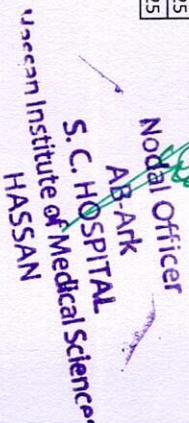 25
25
Nodal Officer
AB-Ark
S. C. HOSPITAL
Hassan Institute of Medical Sciences
HASSAN